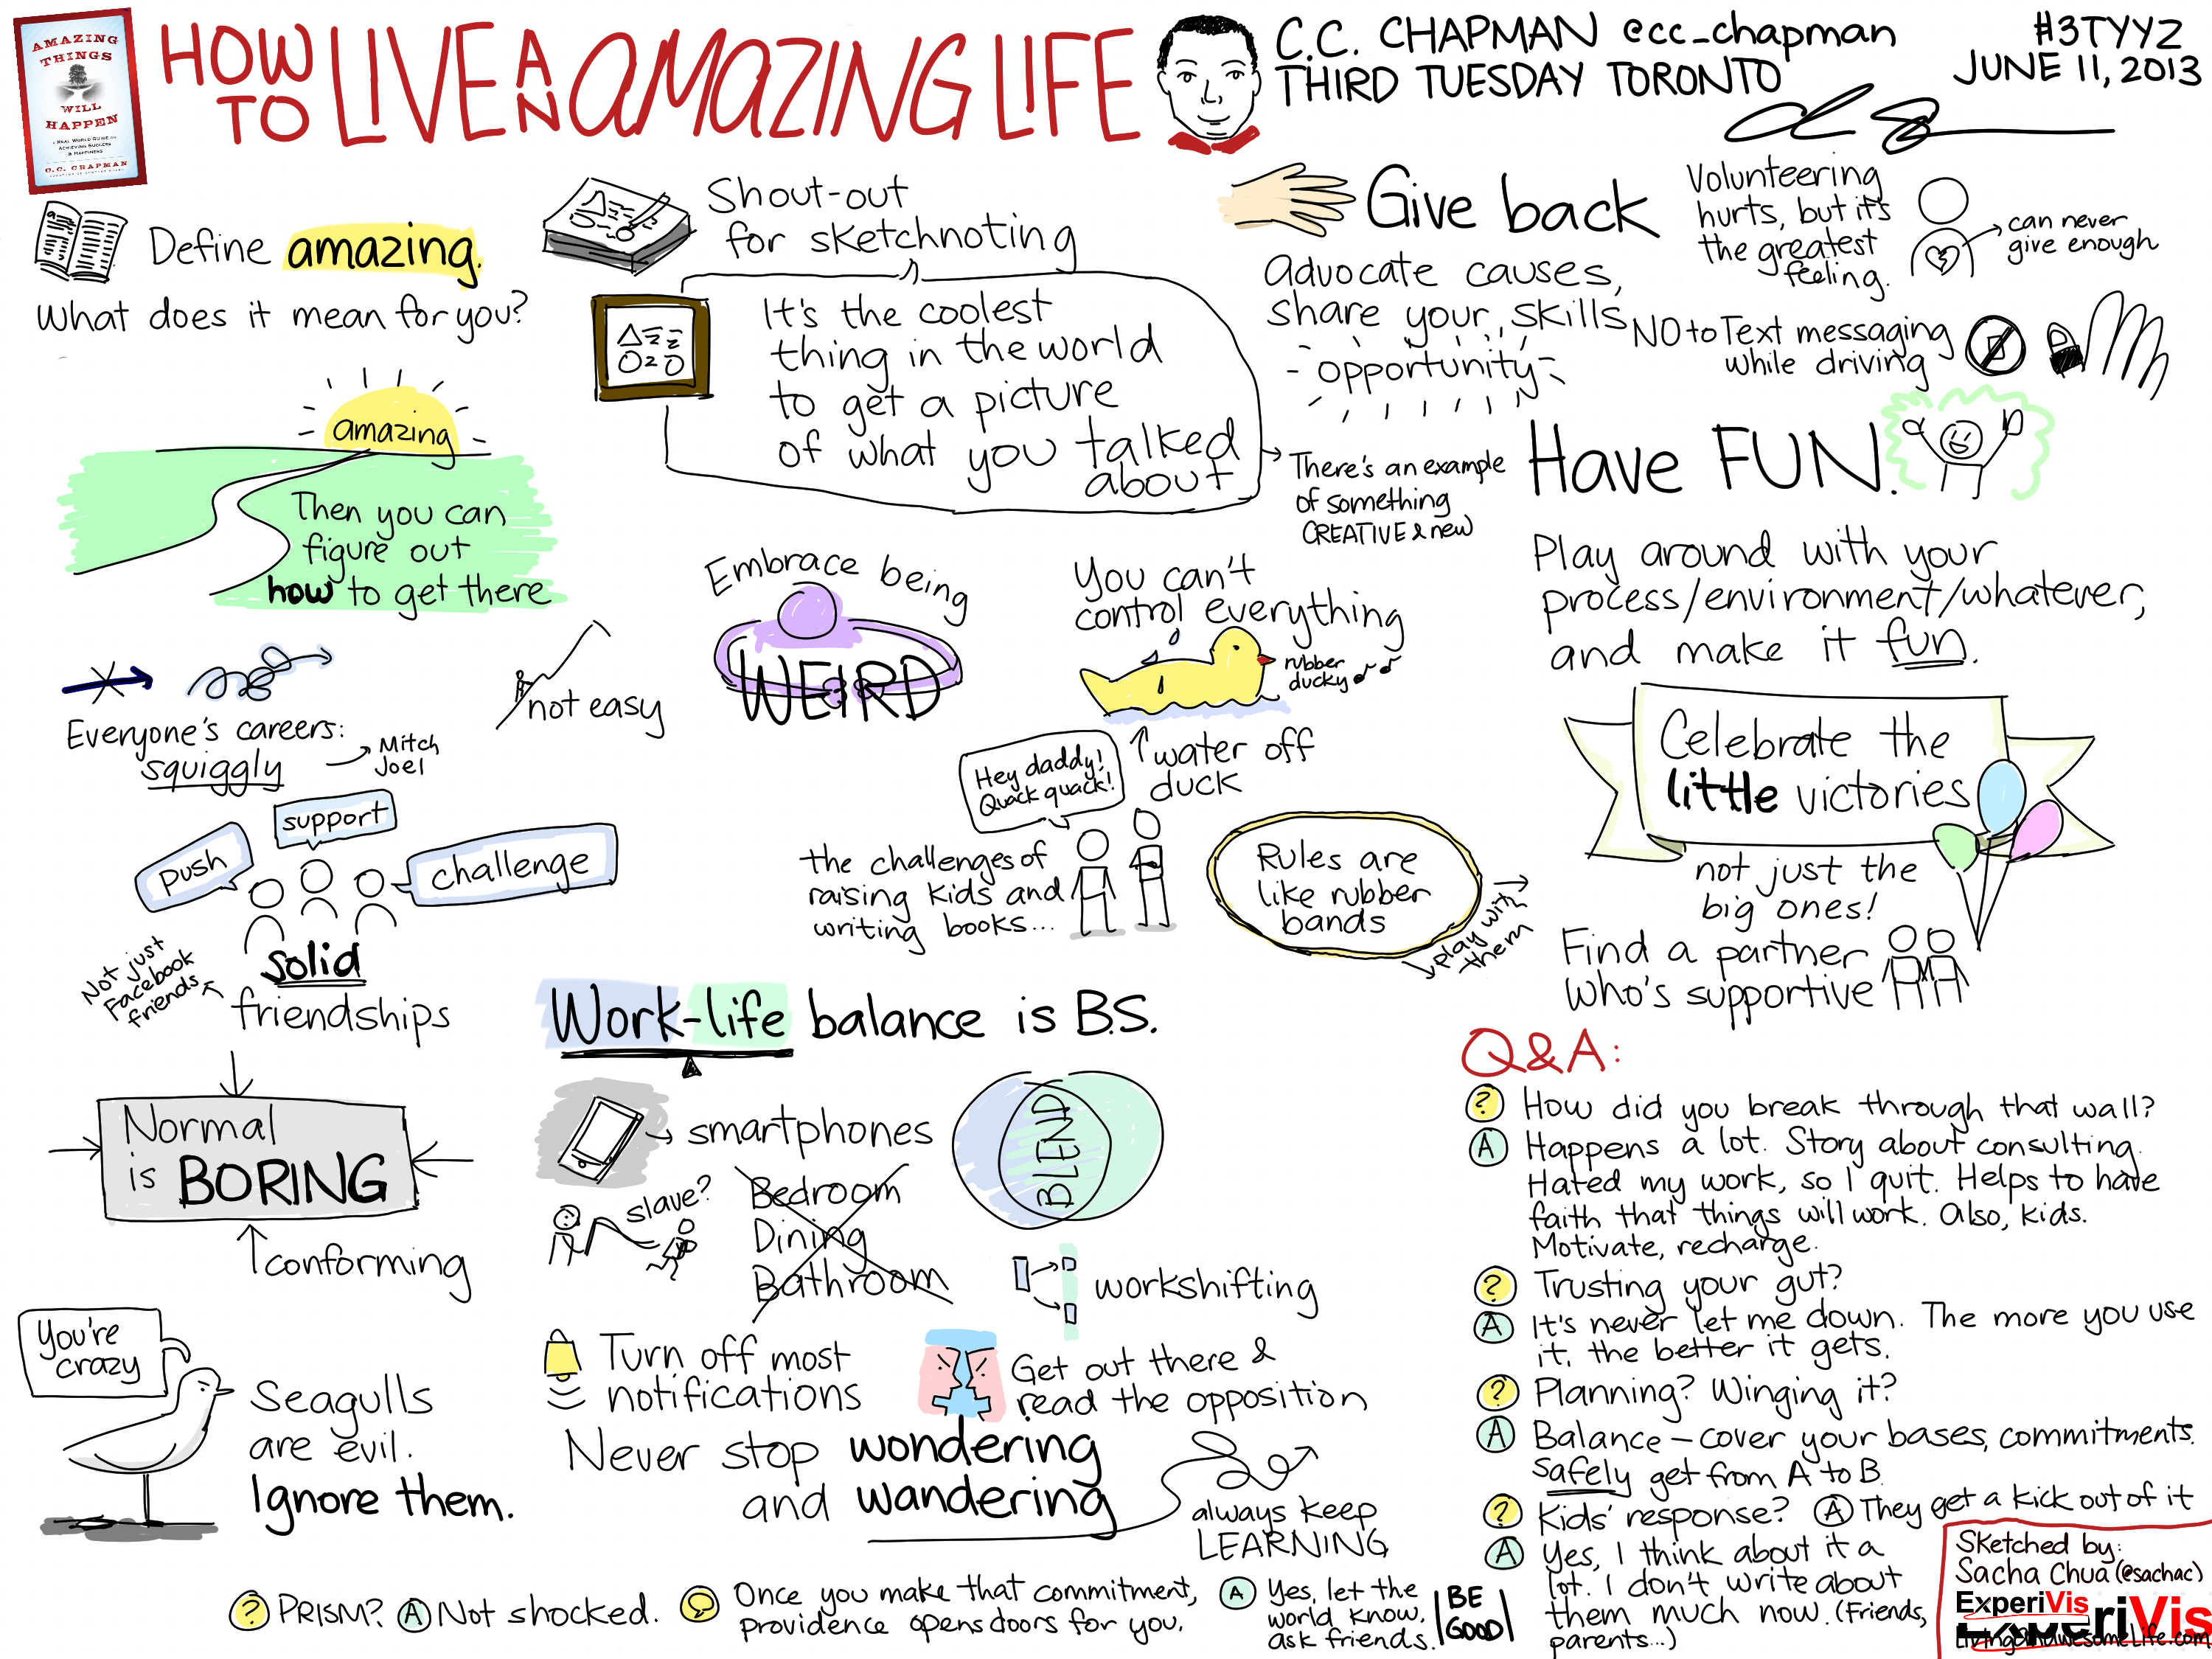 AMAZING
THINGS
WILL
HAPPEN
A REAL WORLD GUIDE ON
ACHIEVING SUCCESS
& HAPPINESS
C.C. CHAPMAN
HOW TO LIVE AN AMAZING LIFE
C.C. CHAPMAN @cc_chapman
THIRD TUESDAY TORONTO
#3TYYZ
JUNE 11, 2013
Define amazing.
What does it mean for you?
amazing
Then you can
figure out
how to get there
Everyone's careers:
squiggly
Mitch
Joel
not easy
push
support
challenge
solid
friendships
Not just
Facebook
friends
Normal
is BORING
conforming
You're
crazy
Seagulls
are evil.
Ignore them.
Shout-out
for sketchnoting
It's the coolest
thing in the world
to get a picture
of what you talked
about
There's an example
of something
CREATIVE & new
Embrace being
WEIRD
You can't
control everything
rubber
ducky
water off
duck
Hey daddy!
Quack quack!
the challenges of
raising kids and
writing books...
Rules are
like rubber
bands
play with
them
Work-life balance is B.S.
smartphones
slave?
Bedroom
Dining
Bathroom
BLEND
workshifting
Turn off most
notifications
Get out there &
read the opposition
Never stop wondering
and wandering
always keep
LEARNING
Give back
Advocate causes,
share your skills
opportunity
Volunteering
hurts, but it's
the greatest
feeling.
can never
give enough
NO to Text messaging
while driving
Have FUN.
Play around with your
process/environment/whatever,
and make it fun.
Celebrate the
little victories
not just the
big ones!
Find a partner
who's supportive
Q&A:
? How did you break through that wall?
A Happens a lot. Story about consulting.
Hated my work, so I quit. Helps to have
faith that things will work. Also, kids.
Motivate, recharge.
? Trusting your gut?
A It's never let me down. The more you use
it, the better it gets.
? Planning? Winging it?
A Balance - cover your bases, commitments.
Safely get from A to B.
? Kids' response? A They get a kick out of it
A Yes, I think about it a
lot. I don't write about
them much now. (Friends,
parents...)
? PRISM? A Not shocked.
Once you make that commitment,
providence opens doors for you.
A Yes, let the
world know,
ask friends.
BE
GOOD
Sketched by:
Sacha Chua (@sachac)
ExperiVis
riVis
LivingAnAwesomeLife.com